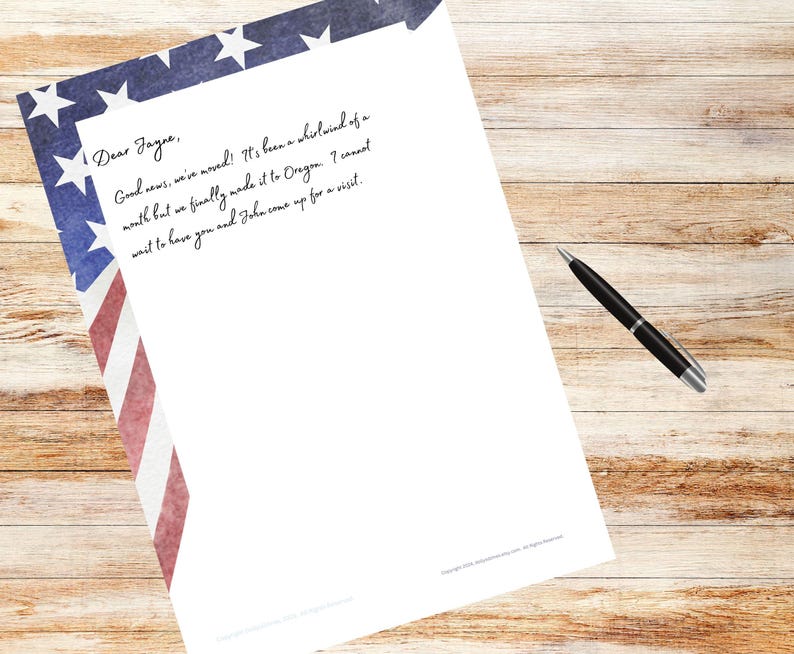 Dear Jayne,
Good news, we've moved! It's been a whirlwind of a
month but we finally made it to Oregon. I cannot
wait to have you and John come up for a visit.
Copyright 2024, dollysdzines.etsy.com. All Rights Reserved.
Copyright DollysDzines, 2024. All Rights Reserved.